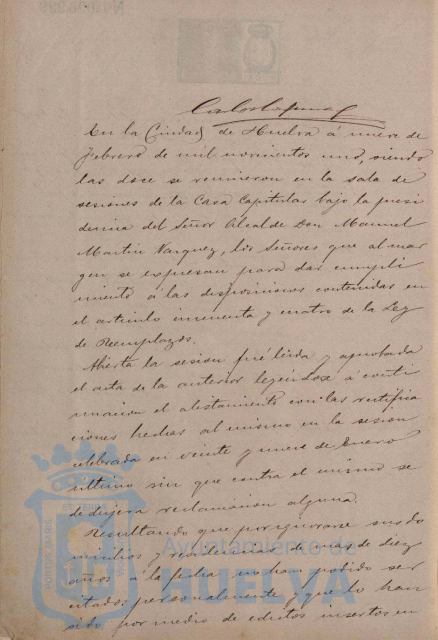 En la Ciudad de Huelva á nueve de
Febrero de mil novecientos uno, siendo
las doce se reunieron en la sala de
sesiones de la Casa Capitular bajo la presi
dencia del Señor Alcalde Don Manuel
Martin Vazquez, los Señores que al mar
gen se expresan para dar cumpli
miento á las disposiciones contenidas en
el articulo cincuenta y cuatro de la Ley
de Reemplazos.
Abierta la sesion fué leida y aprobada
el acta de la anterior leyéndose á conti
nuacion el alistamiento con las rectifica
ciones hechas al mismo en la sesion
celebrada en veinte y nueve de Enero
último sin que contra el mismo se
dedujera reclamacion alguna.
Resultando que por ignorarse sus do
micilios y residencias ha mas de diez
años á la fecha no han podido ser
citados personalmente y que lo han
sido por medio de edictos insertos en
Ayuntamiento de
HUELVA